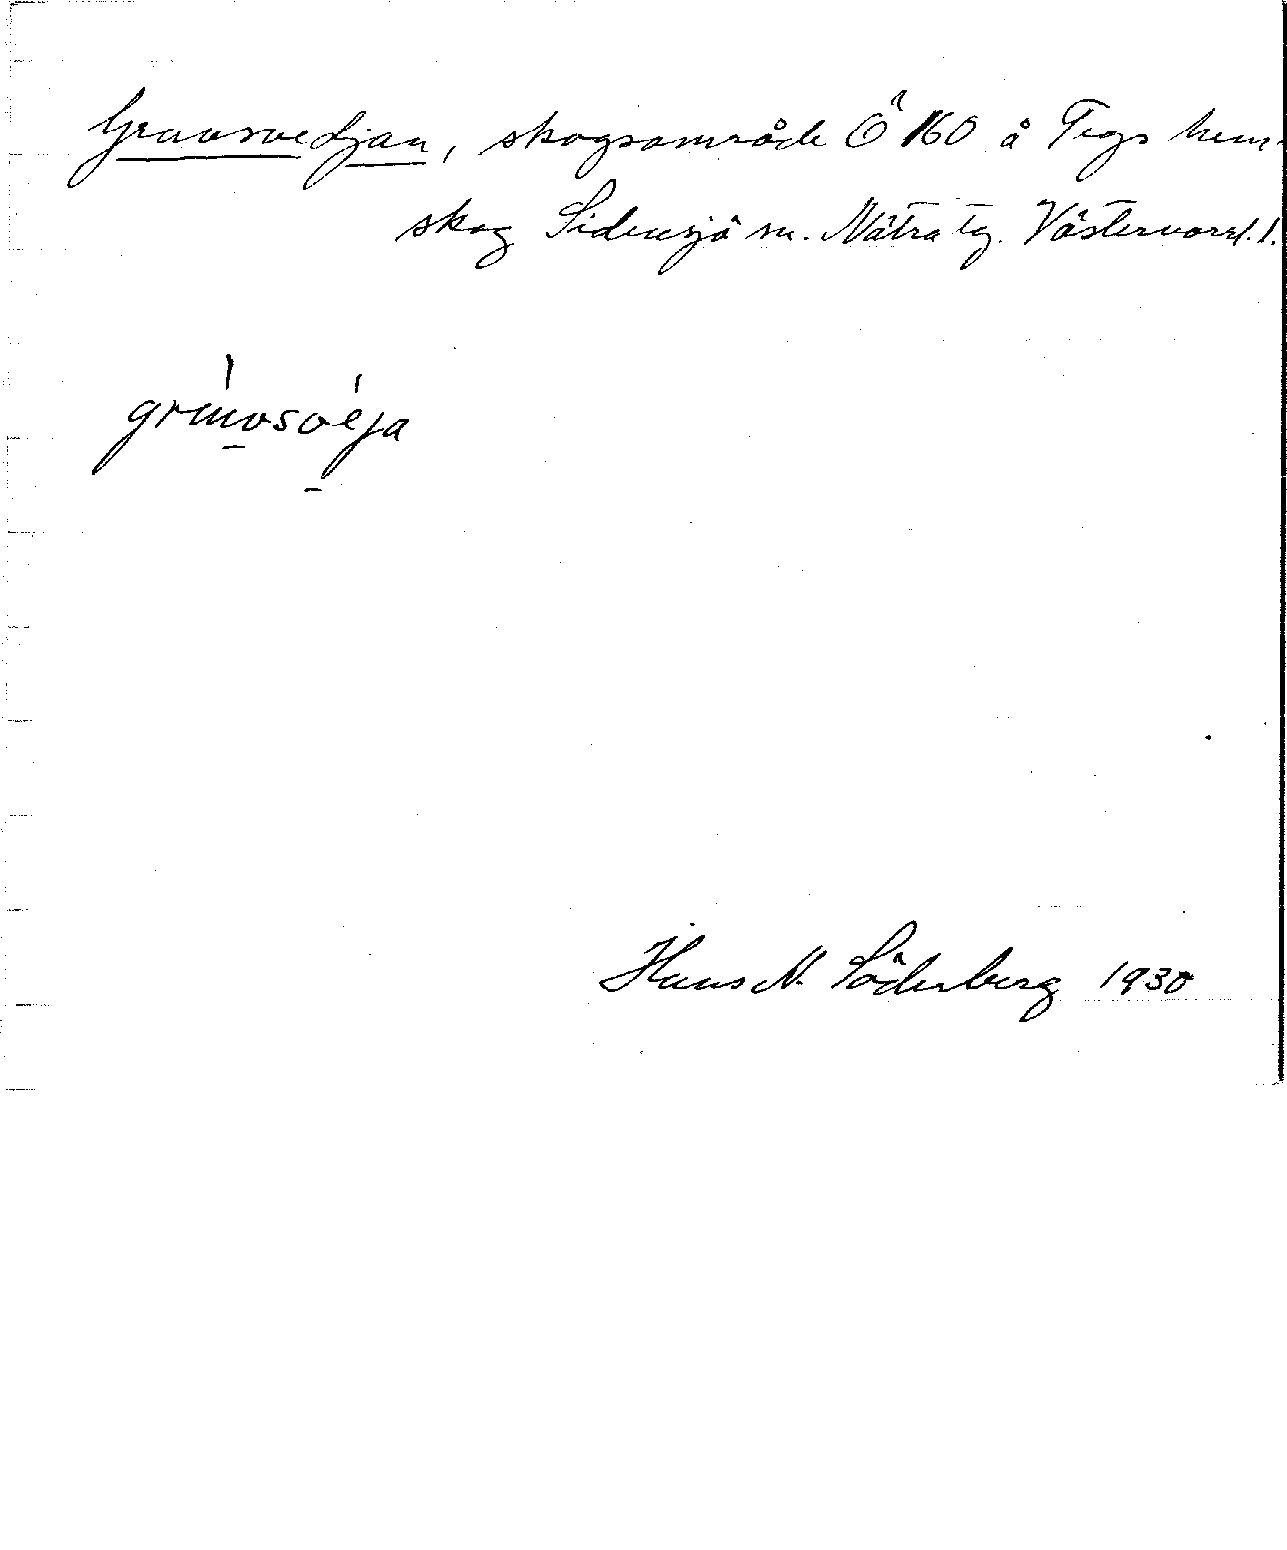 Gravsvedjan, skogsområde Ö 160 å Tegs hem-
skog Sidensjö sn. Nätra tg. Västernorrl. l.
Hans N. Söderberg 1930